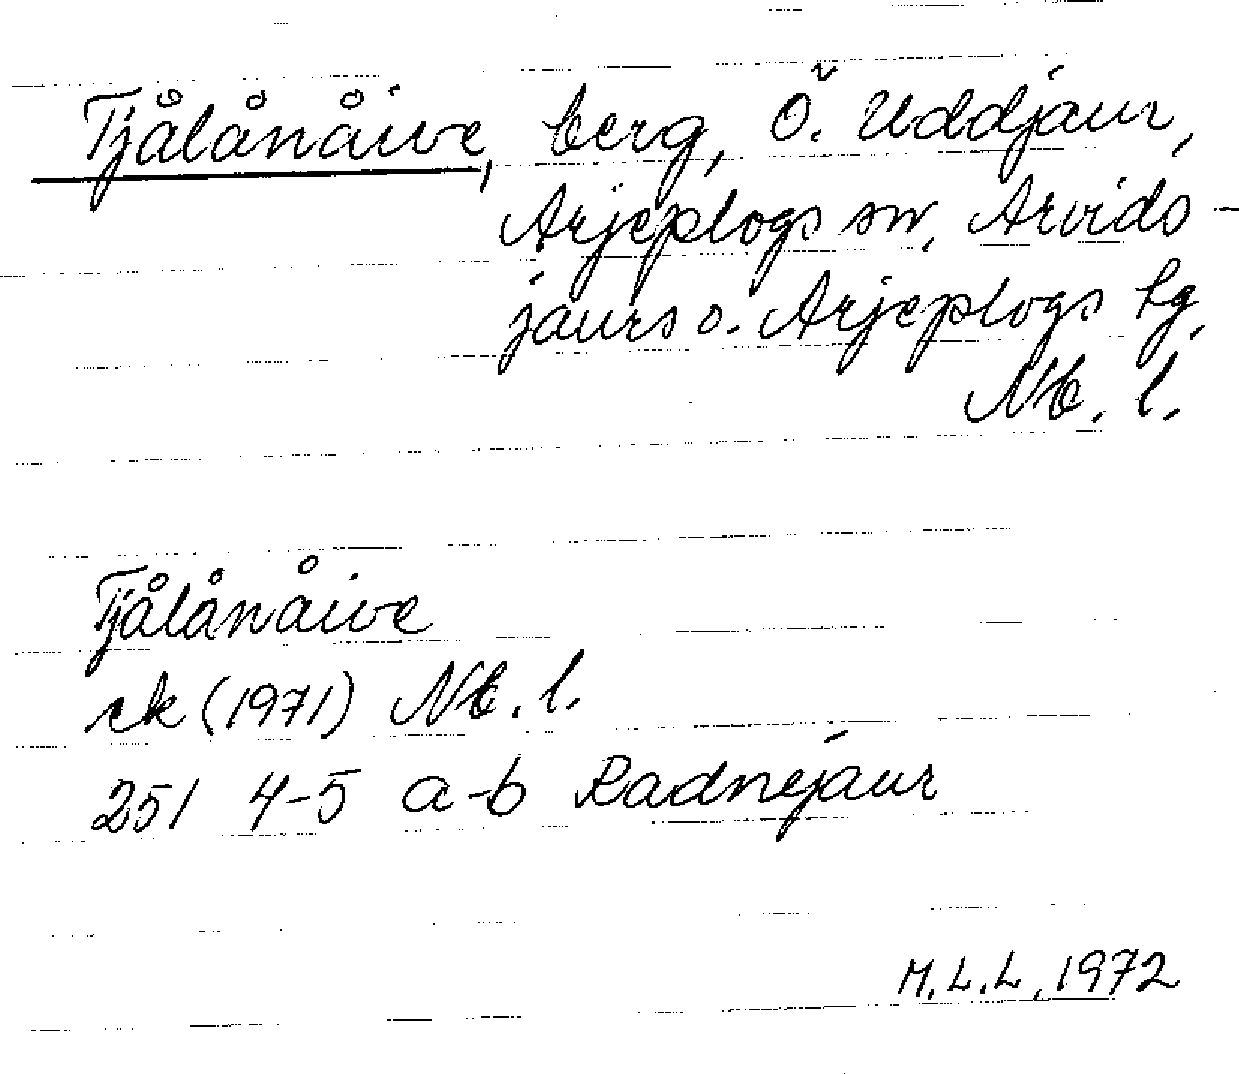 Tjålånåive, berg, Ö. Uddjaur,
Arjeplogs sn, Arvids-
jaurs o. Arjeplogs lg,
Nb. l.
Tjålånåive
rk (1971) Nb. l.
251 4-5 a-b Radnejaur
M.L.L, 1972